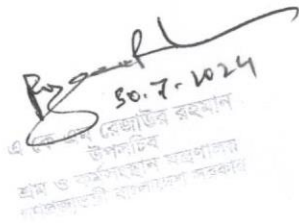 30.7.2024
এ কে এম রেজাউর রহমান
উপসচিব
শ্রম ও কর্মসংস্থান মন্ত্রণালয়
গণপ্রজাতন্ত্রী বাংলাদেশ সরকার